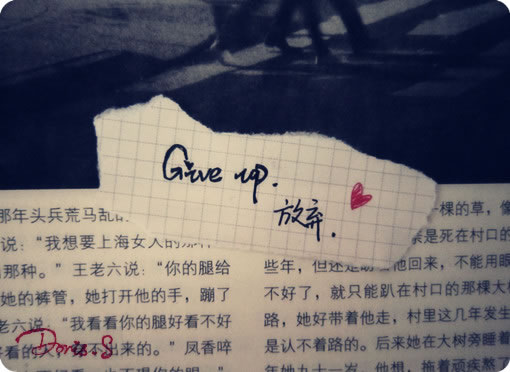 Give up.
放弃.
那年头兵荒马乱的
说：“我想要上海女人的那种
那种。”王老六说：“你的腿给
她的裤管，她打开他的手，蹦了
老六说：“我看看你腿好看不好
好看的 不出来的。”凤香啐
Doris.S
一棵的草，像
是死在村口
些年，但还是 他回来，不能用眼
不好了，就只能趴在村口的那棵大
路，她好带着他走，村里这几年发生
是认不着路的。后来她在大树旁睡着
年她九十一岁，他想，拖着顽疾熬